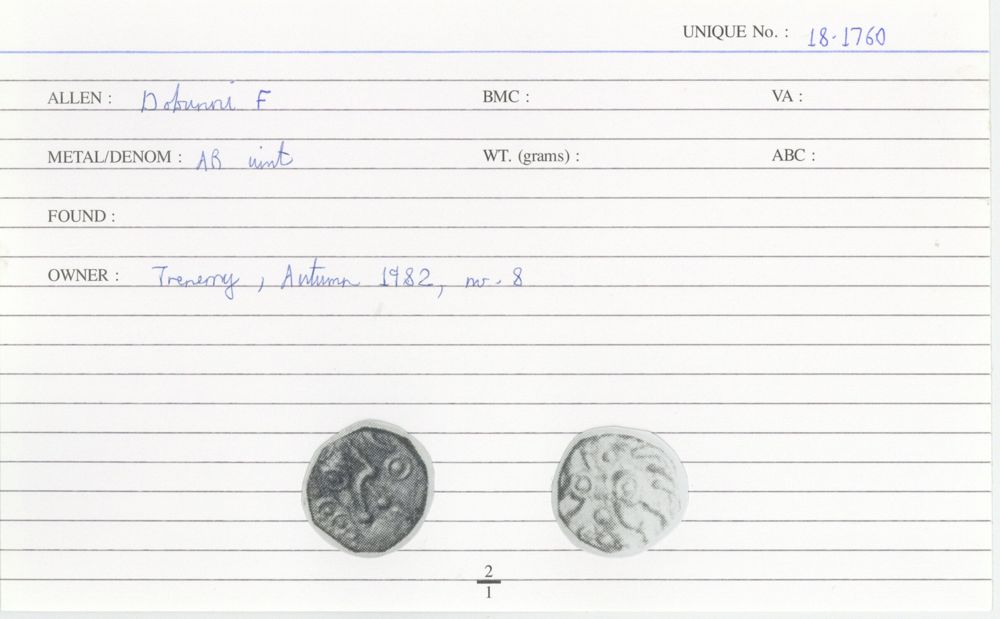 UNIQUE No. : 18.1760
ALLEN : Dobunni F BMC : VA :
METAL/DENOM : AR unit WT. (grams) : ABC :
FOUND :
OWNER : Trenerry, Autumn 1982, nr. 8
2
1